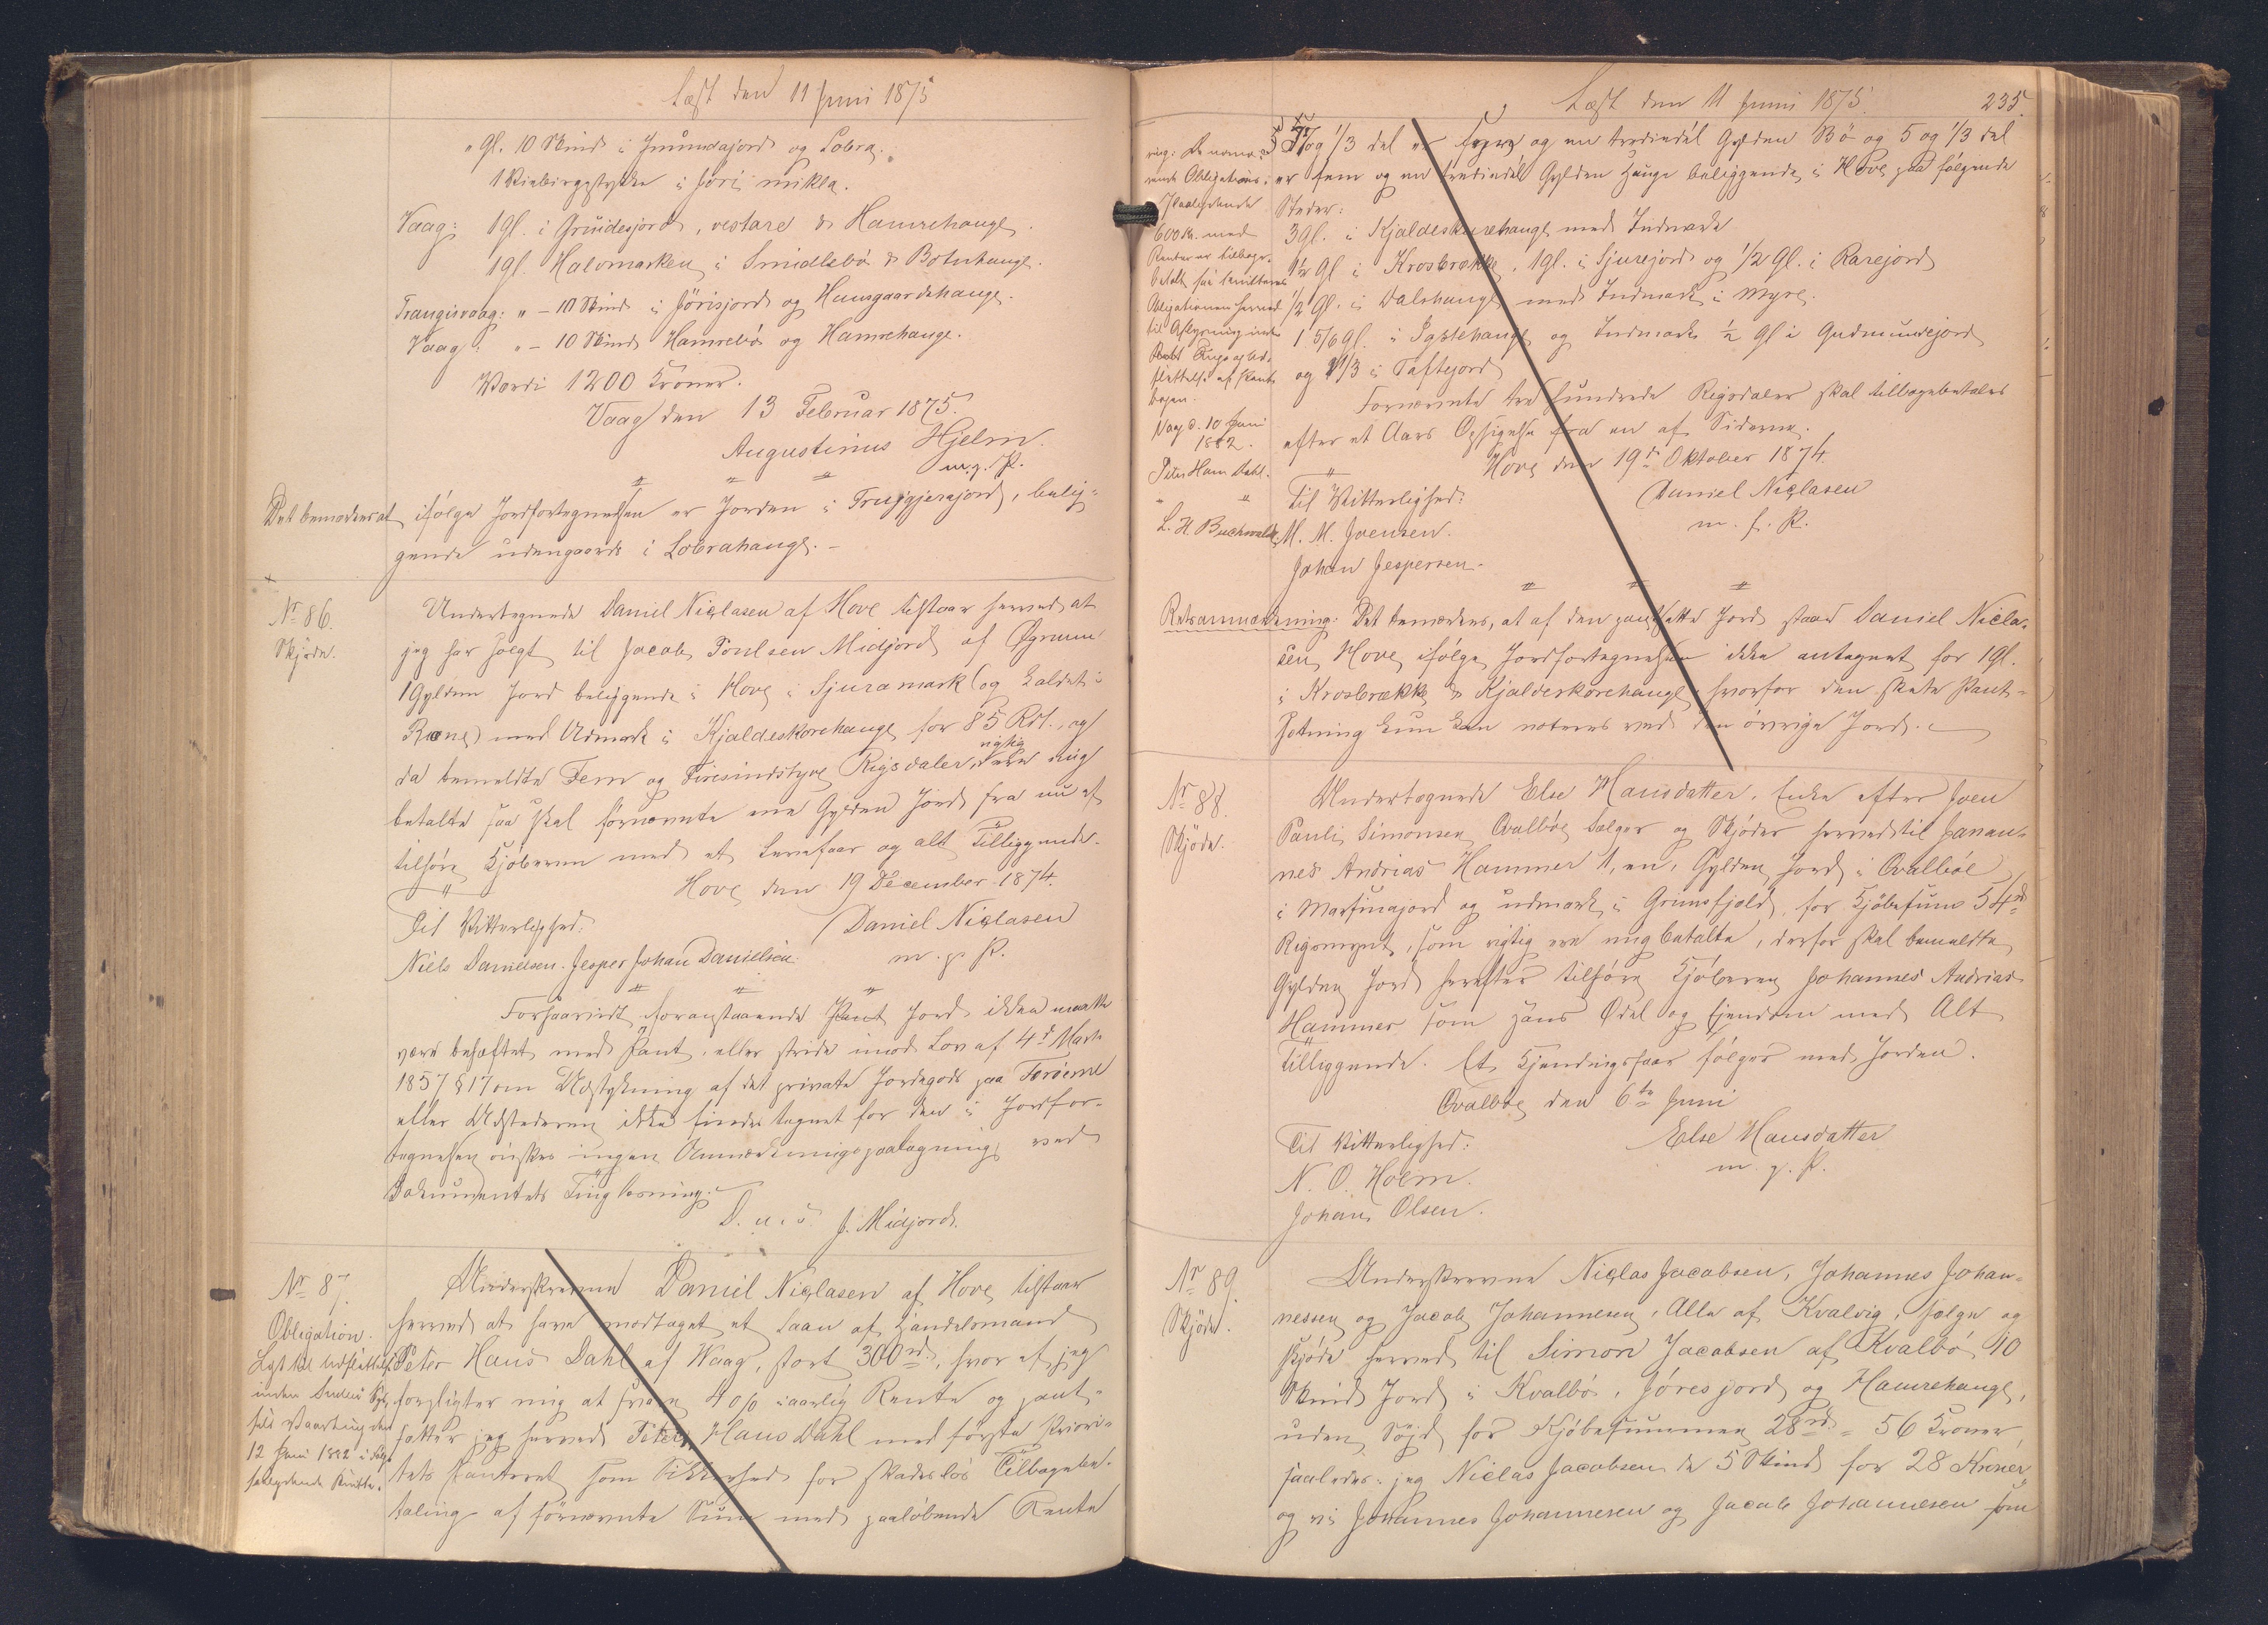 Læst den 11 Juni 1875
" Gl. 10 Skind i Jnundajord og Lobra.
Vaag: 1 Gl. i Gruidesjord, vestare & Hamrehauge.
1 Gl. Halvmarken i Smidlebø & Botnhauge.
Trangisvaag: " – 10 Skind i Jørisjord og Huusgaardshauge.
Vaag: " – 10 Skind Hamrebø og Hamrehauge.
Værdi 1200 Kroner.
Vaag den 13 Februar 1875.
Augustinus Hjelm.
m. p. P.
Det bemærkes at ifølge Jordfortegnelsen er Jorden i, belig-
gende udengaards i Lobrahauge. –
Nr 86.
Skjøde.
Undertegnede Daniel Niclasen af Hove tilstaar herved at
jeg har solgt til Jacob Poulsen Midjord af Øgnum
1 Gylden Jord beliggende i Hove i Sjuramark (og kaldet i
) med Udmark i Kjaldeskorehauge for 85 Rdl., og
da bemeldte Fem og Firesindstyve Rigsdaler rigtig ere mig
betalte saa skal fornævnte ene Gylden Jord fra nu af
tilhøre Kjøberen med et Levefaar og alt Tilliggende.
Hove den 19 December 1874.
Til Vitterlighed:
Daniel Niclasen
Niels Danielsen. Jesper Johan Danielsen.
m. p. P.
Forsaavidt foranstaaende Jord ikke maatte
være behæftet med Pant, eller stride imod Lov af 4de Marts
1857 § 17 om Udstykning af det private Jordegods paa Færøerne
eller Udstederen ikke findes tegnet for den i Jordfor-
tegnelsen ønskes ingen Anmærkningspaategning ved
Dokumentets Tinglæsning.
D. u. s. J. Midjord.
Nr 87.
Obligation.
Underskrevne Daniel Niclasen af Hove tilstaar
herved at have modtaget et Laan af Handelsmand
Peter Hans Dahl af Waag, stort 300 rd., hvor af jeg
forpligter mig at svare 4 % aarlig Rente og pant-
sætter jeg herved Peter Hans Dahl med første Priori-
tets Panteret som Sikkerhed for skadesløs Tilbagebe-
taling af fornævnte Sum med paaløbende Rente
12 Juni 1882 i Følge
Læst den 11 Juni 1875.
235
og 1/3 del og en trediedel Gylden Bø og 5 og 1/3 del
er fem og en trediedel Gylden Hauge beliggende i Hove paa følgende
Steder:
3 Gl. i Kjaldeskorehauge med Indmark
1½ Gl i Krosbrække, 1 Gl. i Sjurejord og 1/2 Gl. i Rarejord
1/2 Gl. i Dalshauge med Indmark i Myre.
1 5/6 Gl. i og Indmark ½ Gl i Gudmundejord
og 1/3 i Taftejord
Fornævnte tre hundrede Rigsdaler skal tilbagebetales
efter et Aars Opsigelse fra en af Siderne.
Hove den 19de Oktober 1874.
Til Vitterlighed:
Daniel Niclasen
m. f. P.
M. M. Joensen.
Johan Jespersen.
600 Kr. med
Vaag d. 10 Juni
1882.
Peter Hans Dahl.
L. H. Buchwaldt
Retsanmærkning: Det bemærkes, at af den pantsatte Jord staar Daniel Nicla-
sen, Hove, ifølge Jordfortegnelsen ikke antegnet for 1 Gl.
i Krosbrække & Kjaldeskorehauge, hvorfor den skete Pant-
sætning kun kan noteres ved den øvrige Jord.
Nr 88.
Skjøde.
Undertegnede Else Hansdatter, Enke efter Joen
Pauli Simonsen Qvalbøe sælger og skjøder herved til Johan-
nes Andrias Hammer 1, en, Gylden Jord i Qvalbøe
i Marfinajord og udmark i Grimsfjeld, for Kjøbesum 54 rd
Rigsmynt, som rigtig ere mig betalte, derfor skal bemeldte
Gylden Jord herefter tilhøre Kjøberen Johannes Andrias
Hammer som hans Odel og Ejendom med Alt
Tilliggende. Et Kjendingsfaar følger med Jorden.
Qvalbøe den 6te Juni
Til Vitterlighed:
Else Hansdatter
m. p. P.
N. O. Holm.
Johan Olsen.
Nr 89.
Skjøde.
Underskrevne Niclas Jacobsen, Johannes Johan-
nesen og Jacob Johannesen, Alle af Kvalvig, sælge og
skjøde herved til Simon Jacobsen af Kvalbø 10
Skind Jord i Kvalbø, Jøresjord og Hamrehauge,
uden for Kjøbesummen 28 rd = 56 Kroner,
saaledes: jeg Niclas Jacobsen de 5 Skind for 28 Kroner,
og vi Johannes Johannesen og Jacob Johannesen som